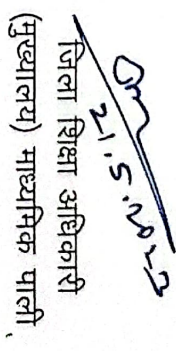 21.5.2023
जिला शिक्षा अधिकारी
(मुख्यालय) माध्यमिक पाली